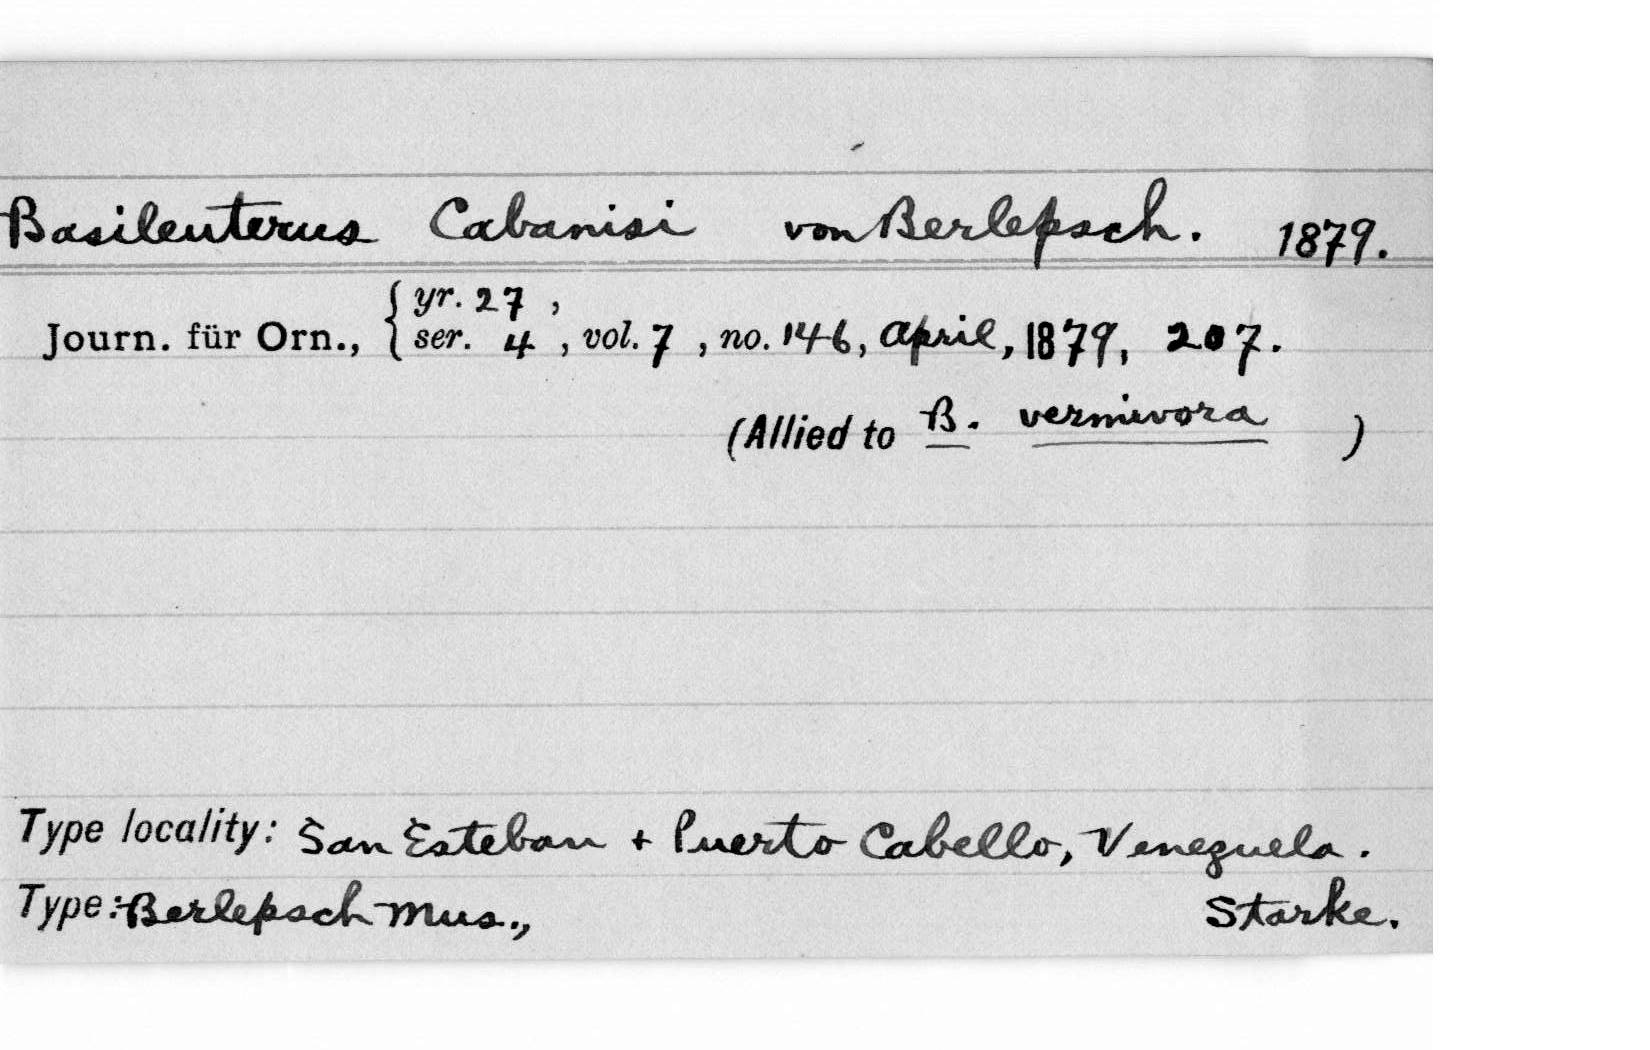 Basileuterus Cabanisi von Berlepsch. 1879.
Journ. für Orn., { yr. 27 ,
ser. 4 , vol. 7 , no. 146, April, 1879, 207.
(Allied to B. vermivora )
Type locality: San Esteban + Puerto Cabello, Venezuela.
Type: Berlepsch Mus., Starke.